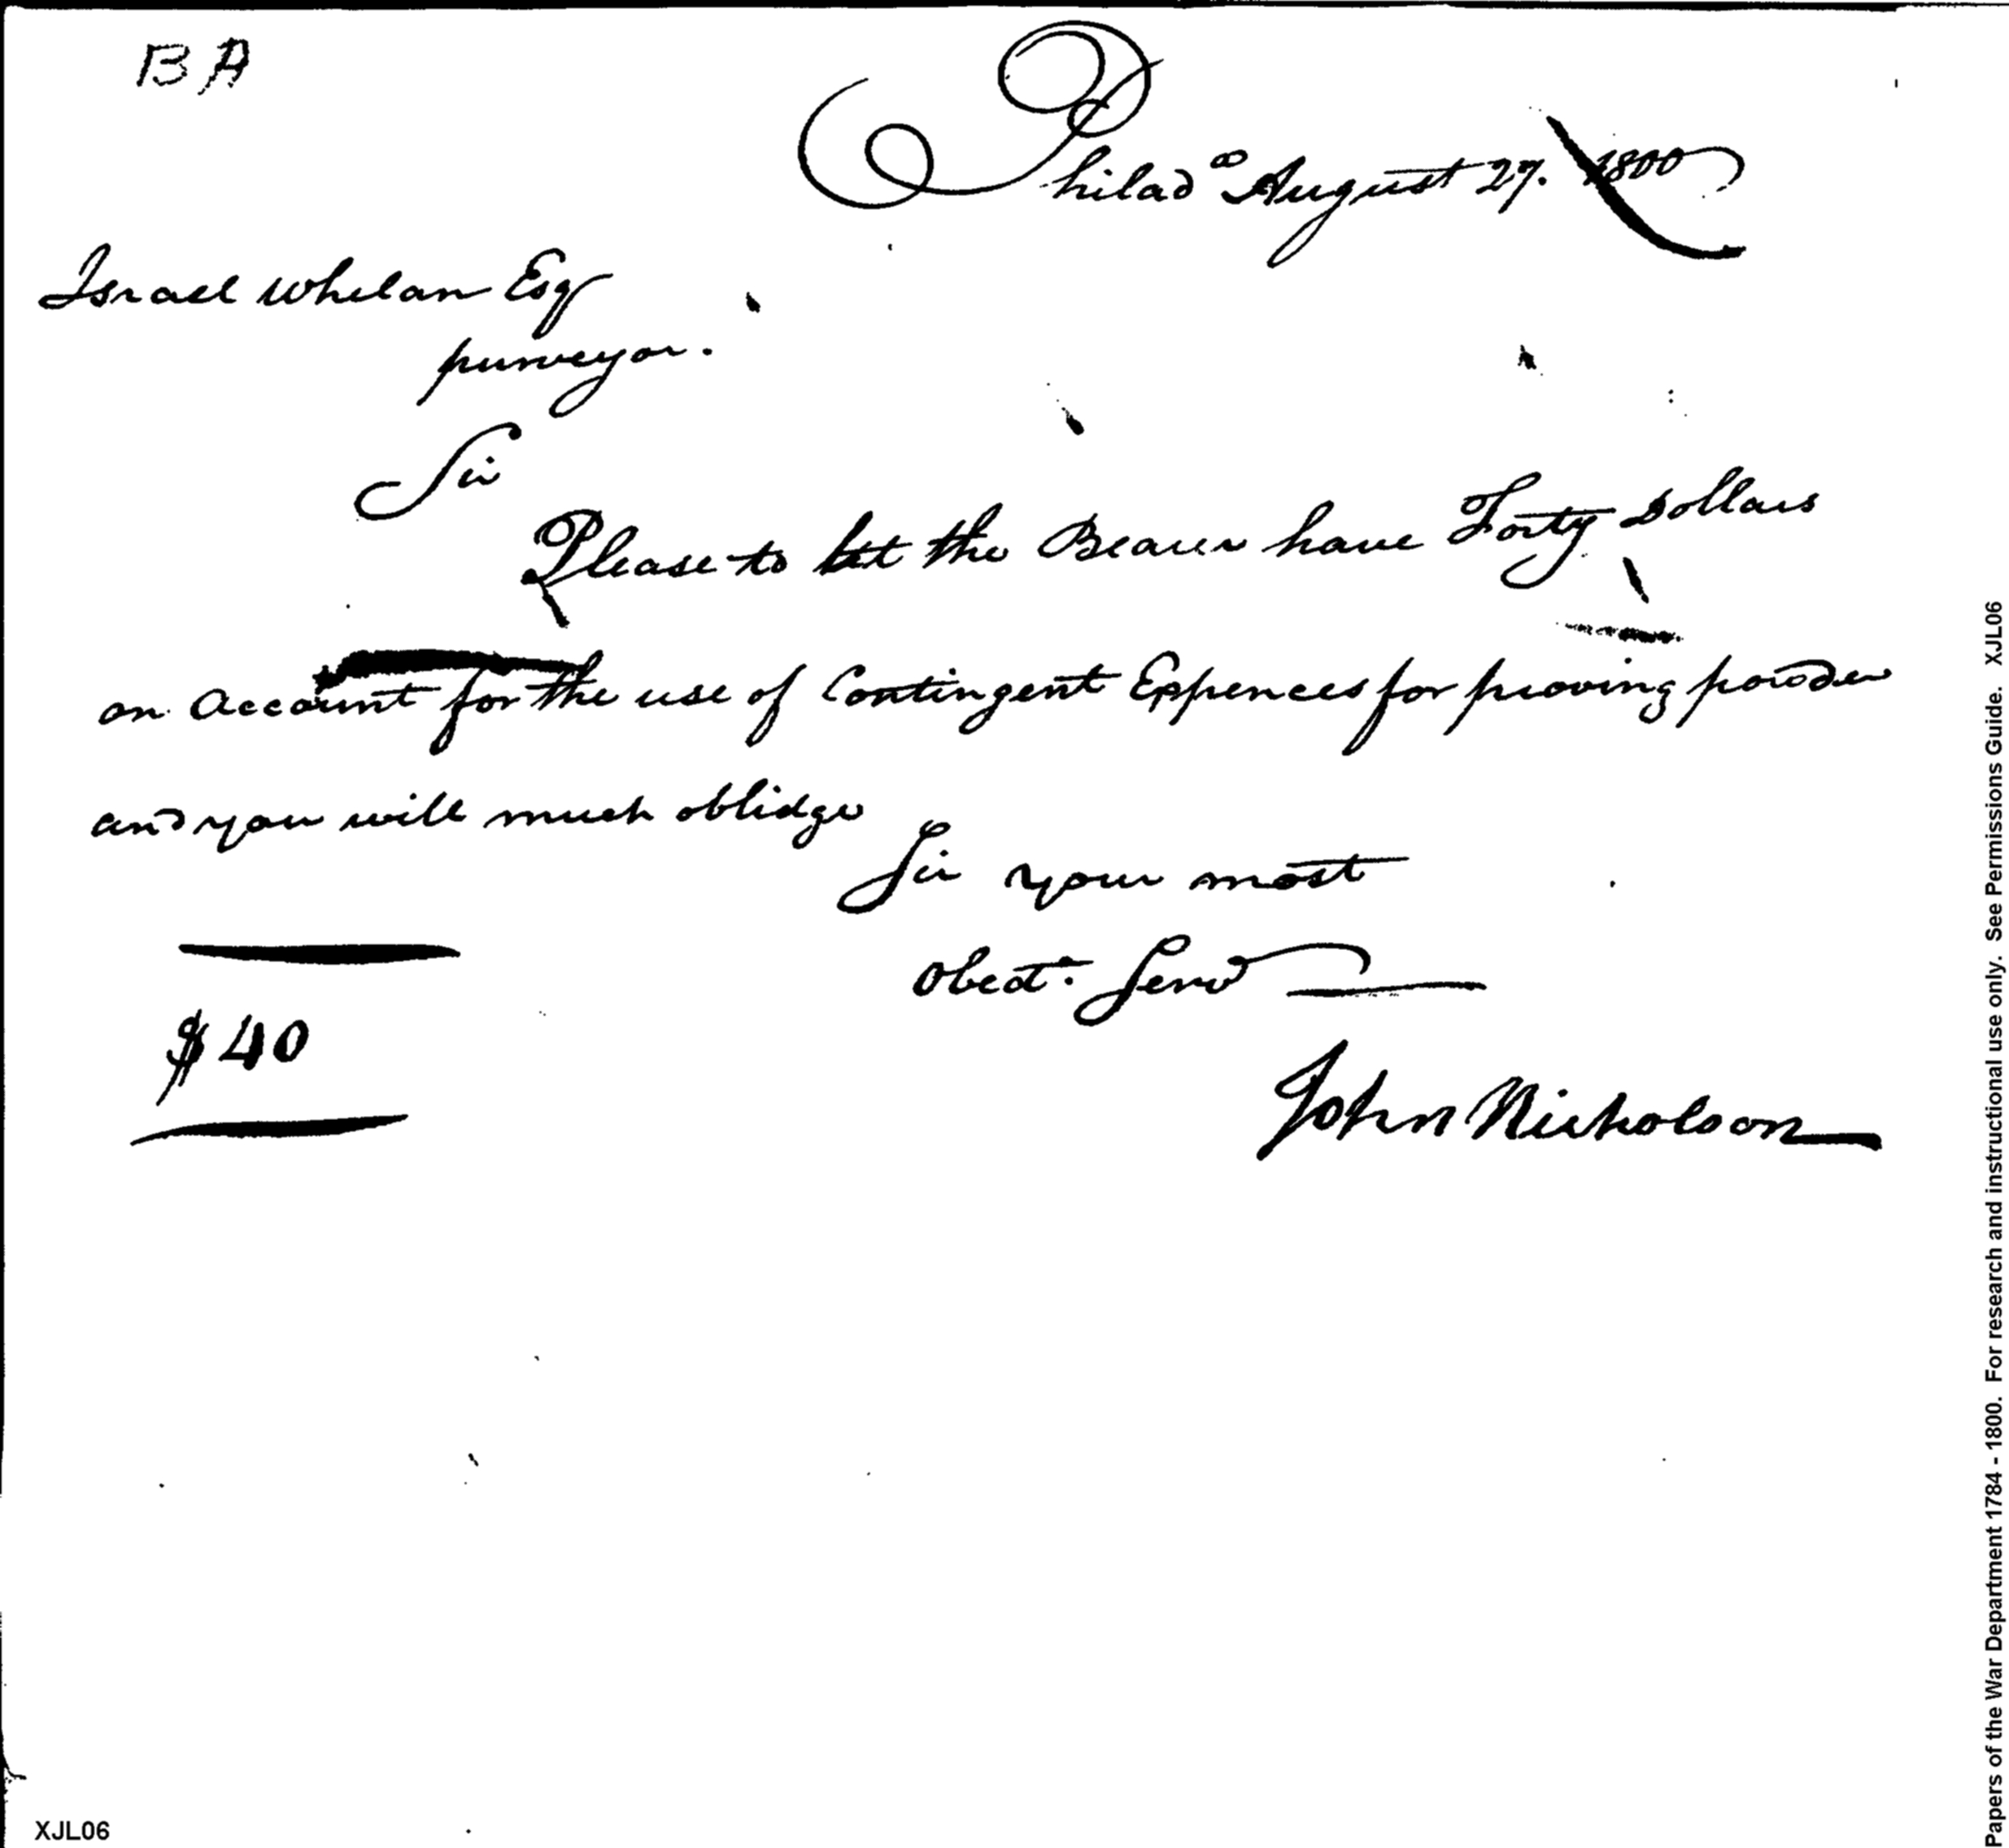 BA
Philadᵃ August 27. 1800
Israel Whelan Esq
purveyor.
Sir
Please to let the Bearer have Forty Dollars
on account for the use of Contingent Expences for proving powder
and you will much oblidge
Sir your most
Obedt. Servt
$40
John Nicholson
XJL06
Papers of the War Department 1784 - 1800. For research and instructional use only. See Permissions Guide. XJL06